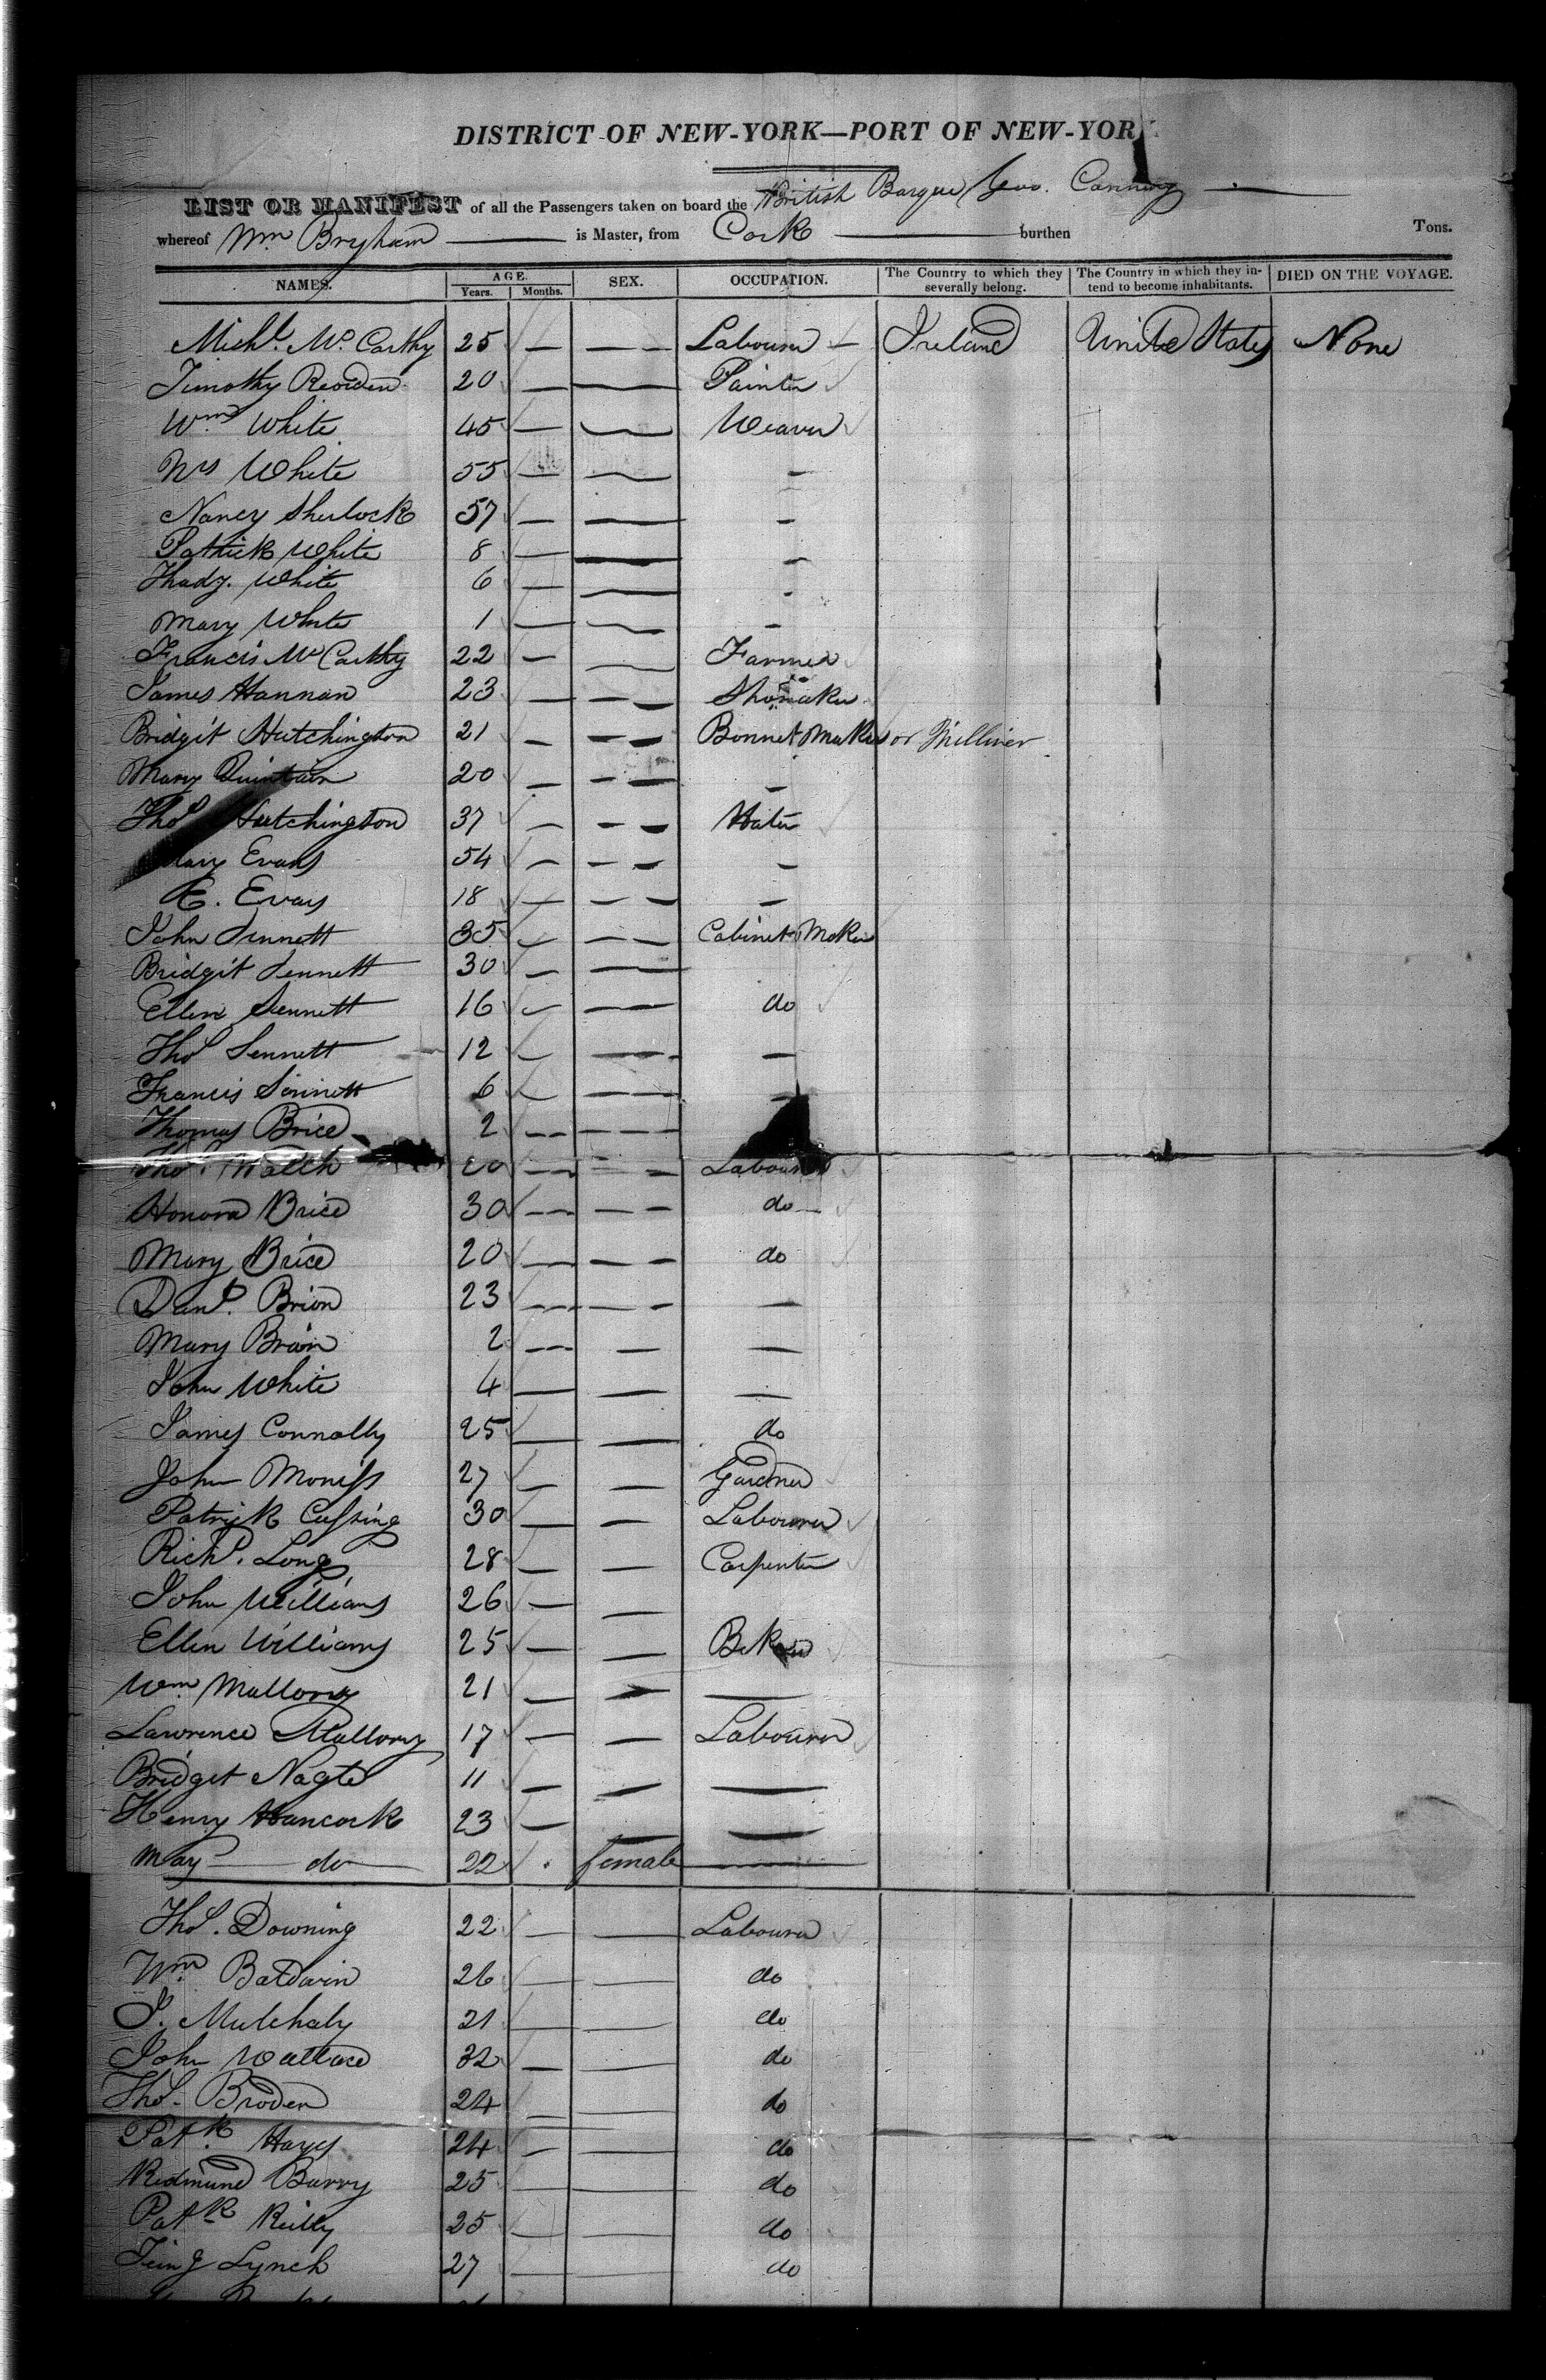 DISTRICT OF NEW-YORK—PORT OF NEW-YOR
LIST OR MANIFEST of all the Passengers taken on board the British Barque Geo. Canning
whereof Wm Bryham is Master, from Cork burthen Tons.
NAMES. AGE. Years. Months. SEX. OCCUPATION. The Country to which they severally belong. The Country in which they intend to become inhabitants. DIED ON THE VOYAGE.
Michl. McCarthy 25 — — Labourer — Ireland United States None
Timothy Reorden 20 — — Painter
Wm White 45 — — Weaver
Mrs White 55 — — -
Nancy Sherlock 57 — — -
Patrick White 8 — — -
Thady. White 6 — — -
Mary White 1 — — -
Francis McCarthy 22 — — Farmer
James Hannan 23 — — Shoemaker
Bridgit Hutchington 21 — — Bonnet Maker or Milliner
Mary Quintain 20 — — -
Thos Hutchington 37 — — Hater
Mary Evans 54 — — -
E. Evans 18 — — -
John Sennett 35 — — Cabinet Maker
Bridgit Sennett 30 — —
Ellen Sennett 16 — — do
Thos Sennett 12 — — —
Francis Sennett 6 — —
Thomas Brice 2 — —
Thos. Walsh 20 — — Labourer
Honora Brice 30 — — do
Mary Brice 20 — — do
Danl. Brion 23 — — —
Mary Brion 2 — — —
John White 4 — — —
James Connolly 25 — — do
John Moniss 27 — — Gardner
Patrick Cussing 30 — — Labourer
Richd. Long 28 — — Carpenter
John Williams 26 — —
Ellen Williams 25 — —
Wm Mallony 21 — — —
Lawrence Mallony 17 — — Labourer
Bridget Nagte 11 — — —
Henry Hancock 23 — — —
May do 22 . female —
Thos. Downing 22 — — Labourer
Wm Baldwin 26 — — do
J. Mulchaly 21 — — do
John Wallace 32 — — do
Thos. Broden 24 — — do
Patk. Hayes 24 — — do
Redmund Barry 25 — — do
Patk Reilly 25 — — do
Lynch 27 — — do